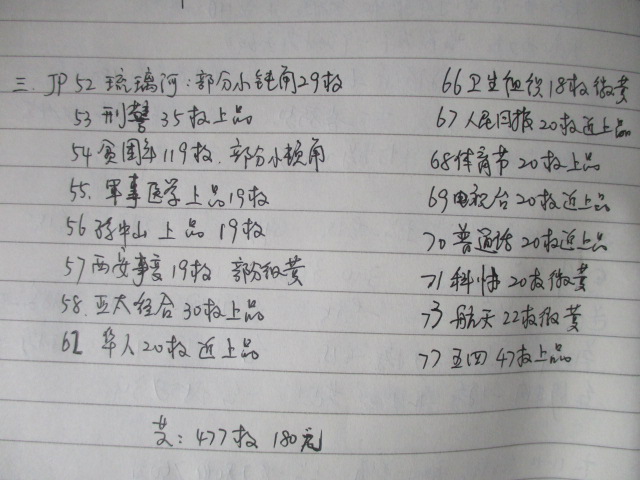 三. JP 52 琉璃河：部分小钝角29枚
53 刑警 35枚上品
54 贫困年119枚. 部分小顿角
55. 军事医学上品19枚
56 孙中山 上品 19枚
57 西安事变19枚 部分微黄
58. 亚太经合30枚上品
62 华人20枚近上品
66卫生组织18枚微黄
67人民日报20枚近上品
68体育节20枚上品
69电视台20枚近上品
70普通话20枚近上品
71科协20枚微黄
73航天22枚微黄
77五四47枚上品
共：477枚 180元